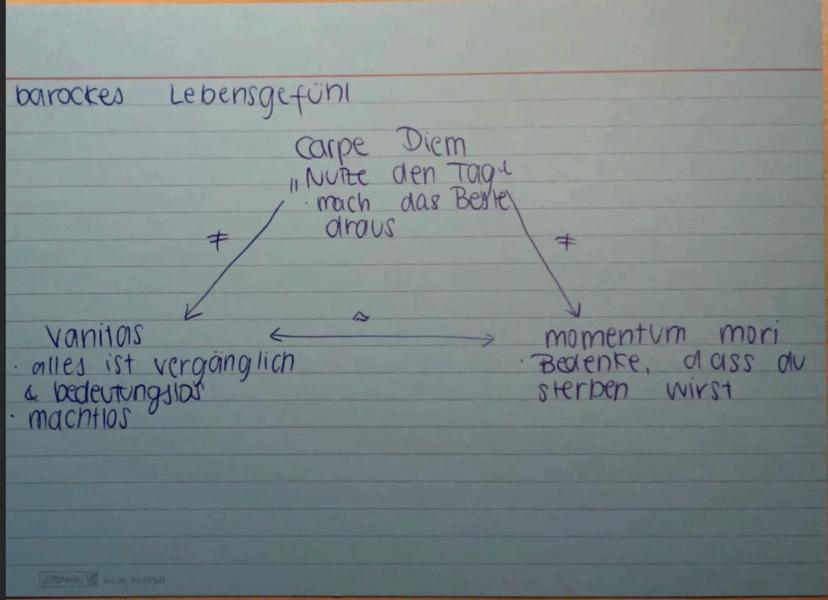 barockes Lebensgefühl
Carpe Diem
„Nutze den Tag“
· mach das Beste
draus
≠ ≠
≈
Vanitas
momentum mori
· alles ist vergänglich
& bedeutungslos
· machtlos
· Bedenke, dass du
sterben wirst